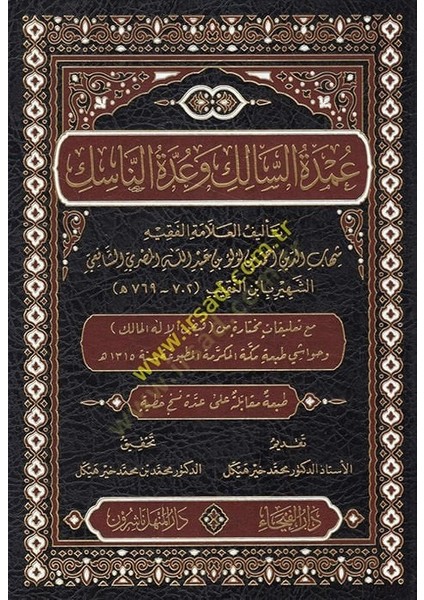 عُمْدَةُ السَّالِك وَعُدَّةُ النَّاسِك
تأليف العلامة الفقيه
شهاب الدين أحمد بن لؤلؤ بن عبد الله المصري الشافعي
الشهير بابن النقيب (٧٠٢ - ٧٦٩ هـ)
مع تعليقات مختارة من (فيض الإله المالك)
وحواشي طبعة مكة المكرمة المطبوعة سنة ١٣١٥ هـ
طبعةٌ مقابلةٌ على عدّة نسخ خطية
تقديم
الأستاذ الدكتور محمد خير هيكل
تحقيق
الدكتور محمد بن محمد خير هيكل
دار الفيحاء
دار المنهل ناشرون
www.irsad.com.tr